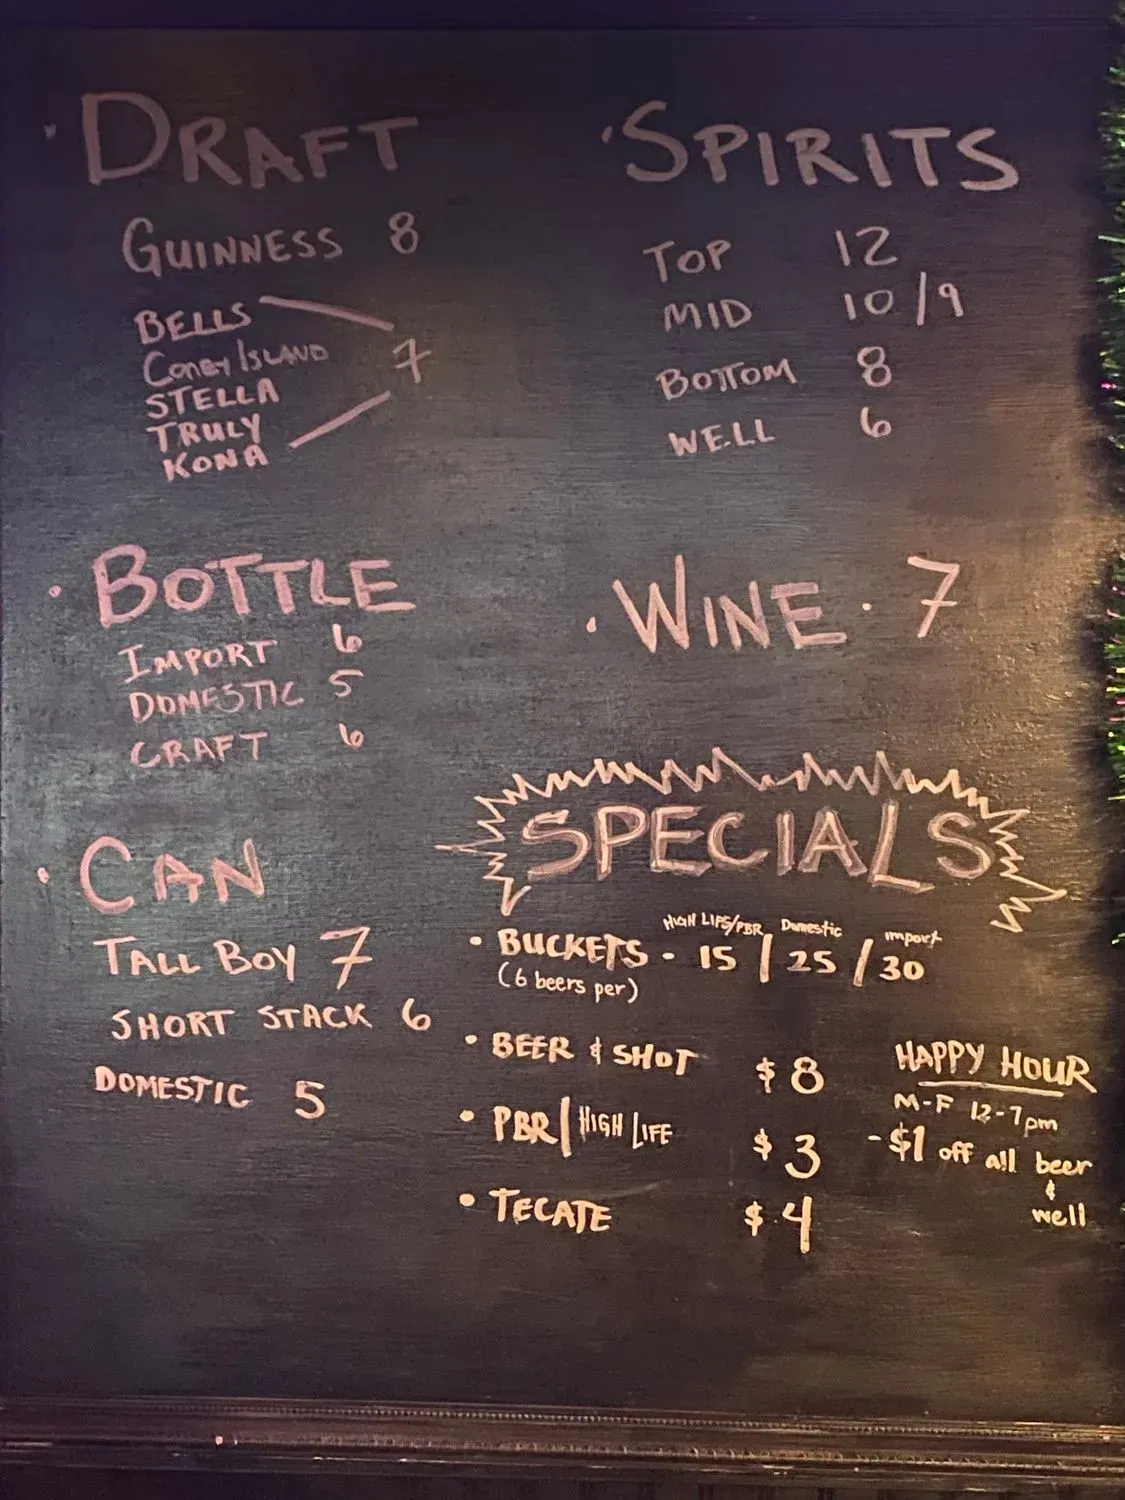 · DRAFT
GUINNESS 8
BELLS
CONEY ISLAND 7
STELLA
TRULY
KONA
· SPIRITS
TOP 12
MID 10/9
BOTTOM 8
WELL 6
· BOTTLE
IMPORT 6
DOMESTIC 5
CRAFT 6
· WINE · 7
· CAN
TALL BOY 7
SHORT STACK 6
DOMESTIC 5
SPECIALS
HIGH LIFE/PBR Domestic import
· BUCKETS - 15 / 25 / 30
(6 beers per)
· BEER & SHOT $8
· PBR/HIGH LIFE $3
· TECATE $4
HAPPY HOUR
M-F 12-7pm
-$1 off all beer
&
well